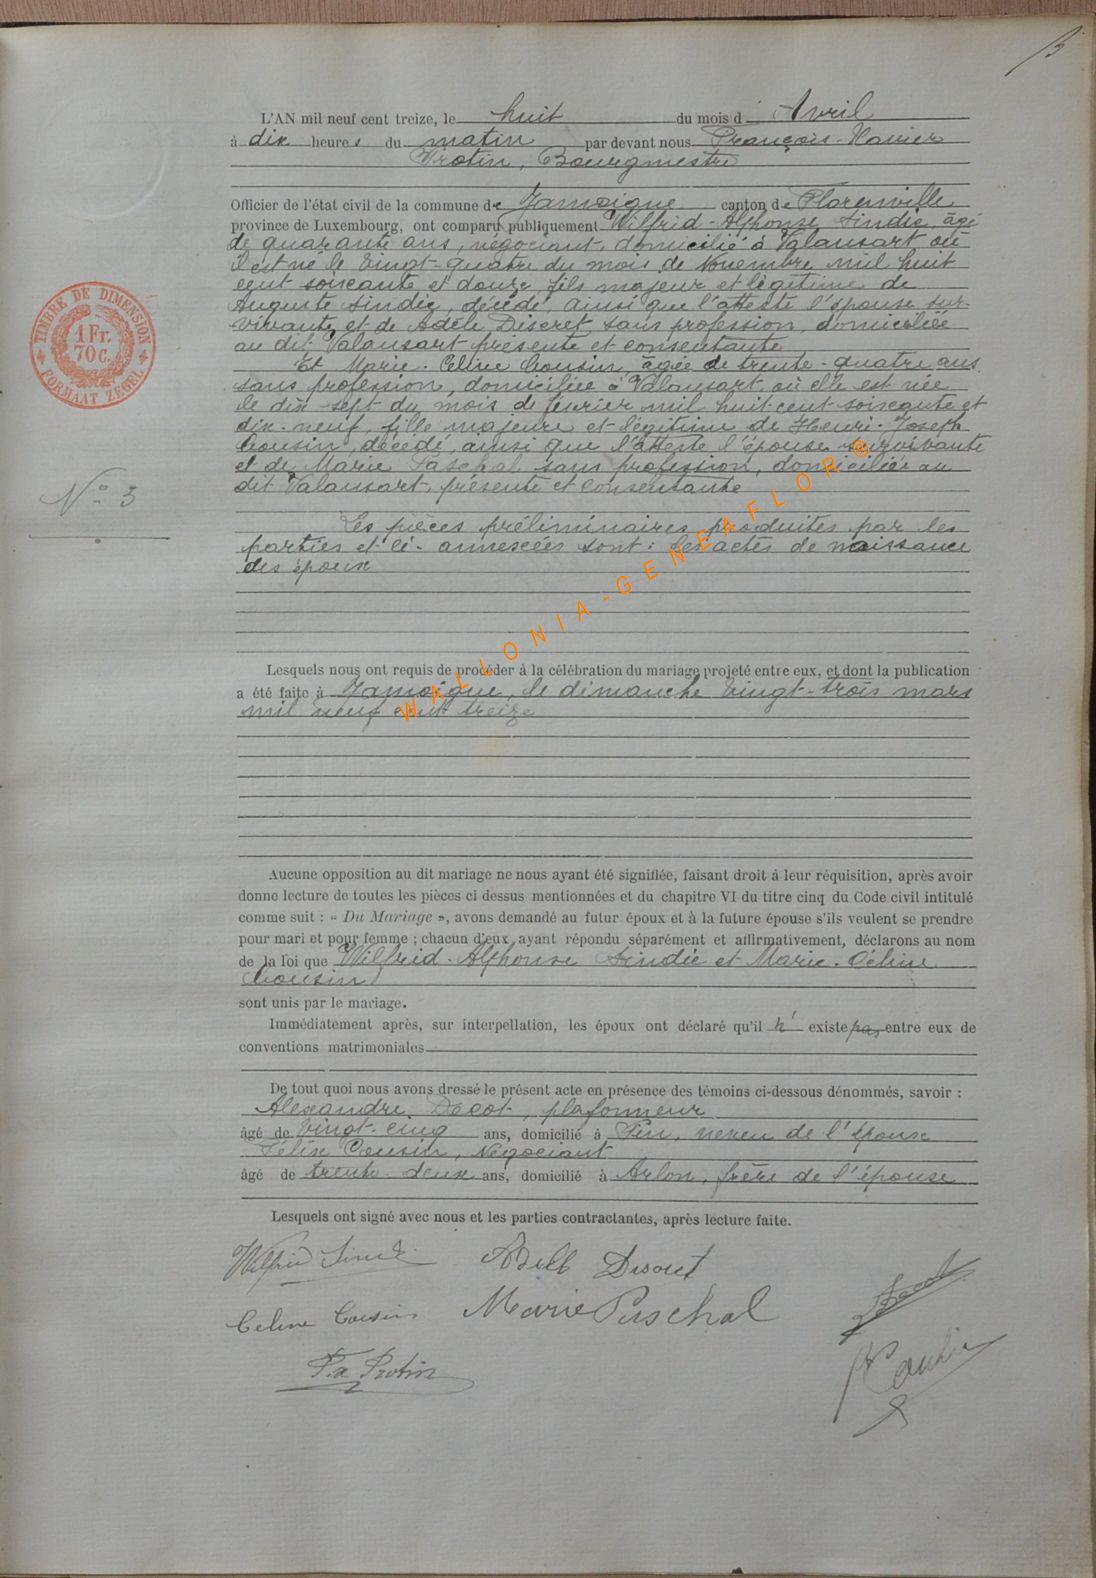 3
L'AN mil neuf cent treize, le huit du mois d' Avril
à dix heures du matin par devant nous François-Xavier
Protin, Bourgmestre
Officier de l'état civil de la commune de Jamoigne canton de Florenville
province de Luxembourg, ont comparu publiquement Wilfrid-Alphonse Sindic, âgé
de quarante ans, négociant, domicilié à Valansart où
il est né le vingt-quatre du mois de Novembre mil huit
cent soixante et douze, fils majeur et légitime de
Auguste Sindic, décédé, ainsi que l'atteste l'épouse sur-
vivante et de Adèle Discret, sans profession, domiciliée
au dit Valansart présente et consentante
Et Marie-Céline Cousin, âgée de trente-quatre ans
sans profession, domiciliée à Valansart où elle est née
le dix-sept du mois de février mil huit cent soixante et
dix-neuf, fille majeure et légitime de Henri-Joseph
Cousin, décédé, ainsi que l'atteste l'épouse survivante
et de Marie Paschal sans profession, domiciliée au
dit Valansart, présente et consentante
N° 3
Les pièces préliminaires produites par les
parties et ci-annexées sont: les actes de naissance
des époux
Lesquels nous ont requis de procéder à la célébration du mariage projeté entre eux, et dont la publication
a été faite à Jamoigne, le dimanche vingt-trois mars
mil neuf cent treize
Aucune opposition au dit mariage ne nous ayant été signifiée, faisant droit à leur réquisition, après avoir
donne lecture de toutes les pièces ci dessus mentionnées et du chapitre VI du titre cinq du Code civil intitulé
comme suit : « Du Mariage », avons demandé au futur époux et à la future épouse s'ils veulent se prendre
pour mari et pour femme ; chacun d'eux ayant répondu séparément et affirmativement, déclarons au nom
de la loi que Wilfrid-Alphonse Sindic et Marie-Céline
Cousin
sont unis par le mariage.
Immédiatement après, sur interpellation, les époux ont déclaré qu'il n' existe pas entre eux de
conventions matrimoniales
De tout quoi nous avons dressé le présent acte en présence des témoins ci-dessous dénommés, savoir :
Alexandre Decot, plafonneur
âgé de vingt-cinq ans, domicilié à Pin, neveu de l'épouse
Félix Cousin, Négociant
âgé de trente-deux ans, domicilié à Arlon, frère de l'épouse
Lesquels ont signé avec nous et les parties contractantes, après lecture faite.
Wilfrid Sindic Adèle Discret
Celine Cousin Marie Paschal Decot
F.x Protin Cousin
TIMBRE DE DIMENSION
1 Fr.
70 c.
FORMAAT ZEGEL
WALLONIA-GENEAFLOR®